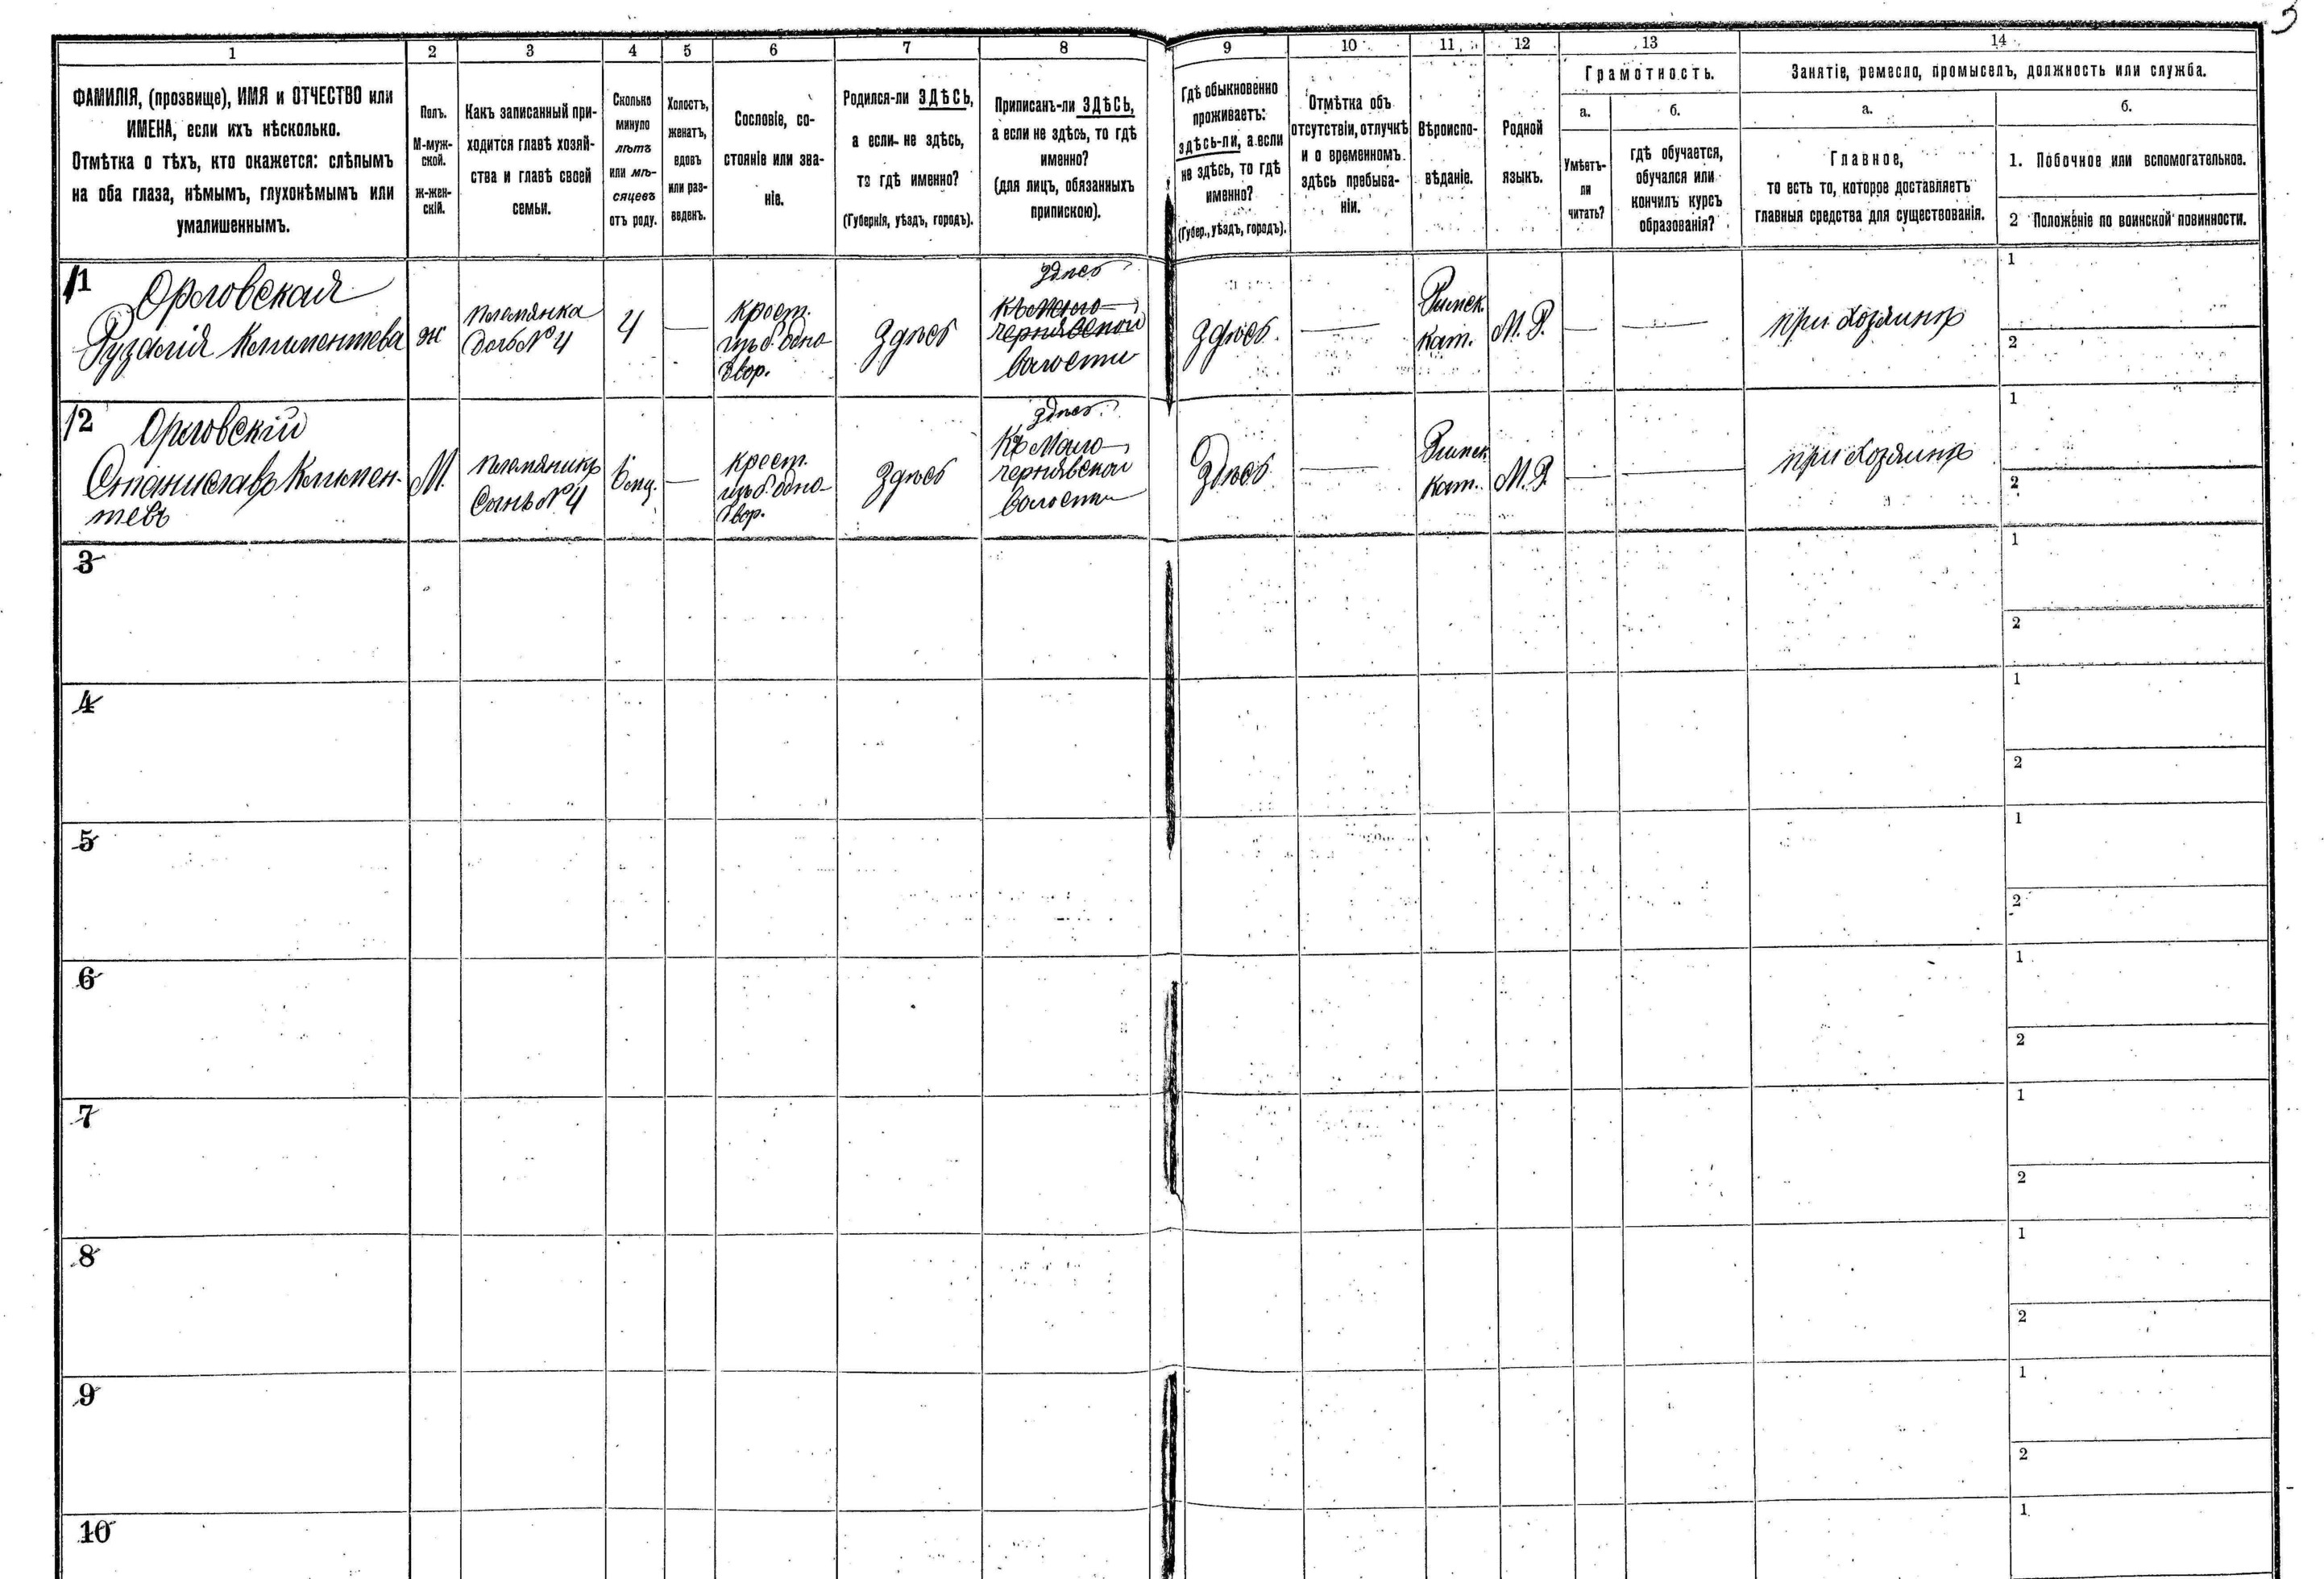 5
1 2 3 4 5 6 7 8 9 10 11 12 13 14
ФАМИЛІЯ, (прозвище), ИМЯ и ОТЧЕСТВО или
ИМЕНА, если ихъ нѣсколько.
Отмѣтка о тѣхъ, кто окажется: слѣпымъ
на оба глаза, нѣмымъ, глухонѣмымъ или
умалишеннымъ.
Полъ.
М-муж-
ской.
ж-жен-
скій.
Какъ записанный при-
ходится главѣ хозяй-
ства и главѣ своей
семьи.
Сколько
минуло
лѣтъ
или мѣ-
сяцевъ
отъ роду.
Холостъ,
женатъ,
вдовъ
или раз-
веденъ.
Сословіе, со-
стояніе или зва-
ніе.
Родился-ли ЗДѢСЬ,
а если не здѣсь,
то гдѣ именно?
(Губернія, уѣздъ, городъ).
Приписанъ-ли ЗДѢСЬ,
а если не здѣсь, то гдѣ
именно?
(для лицъ, обязанныхъ
припискою).
Гдѣ обыкновенно
проживаетъ:
здѣсь-ли, а если
не здѣсь, то гдѣ
именно?
(Губер., уѣздъ, городъ).
Отмѣтка объ
отсутствіи, отлучкѣ
и о временномъ
здѣсь пребыва-
ніи.
Вѣроиспо-
вѣданіе.
Родной
языкъ.
Грамотность.
а.
Умѣетъ-
ли
читать?
б.
гдѣ обучается,
обучался или
кончилъ курсъ
образованія?
Занятіе, ремесло, промыселъ, должность или служба.
а.
Главное,
то есть то, которое доставляетъ
главныя средства для существованія.
б.
1. Побочное или вспомогательное.
2 Положеніе по воинской повинности.
11
Орловская
Рузалія Климентева
ж
племянка
дочь № 4
4
—
крест.
изъ б. одно-
двор.
здѣсь
здѣсь
къ Мало-
чернявской
волости
здѣсь
—
Римск.
кат.
М. Р.
—
—
при хозяинѣ
1
2
12
Орловскій
Станиславъ Климен-
тевъ
М.
племяникъ
Сынъ № 4
6 мц.
—
крест.
изъ б. одно-
двор.
здѣсь
здѣсь
Къ Мало-
чернявской
волости
здѣсь
—
Римск.
кат.
М. Р.
—
—
при хозяинѣ
1
2
3
1
2
4
1
2
5
1
2
6
1
2
7
1
2
8
1
2
9
1
2
10
1